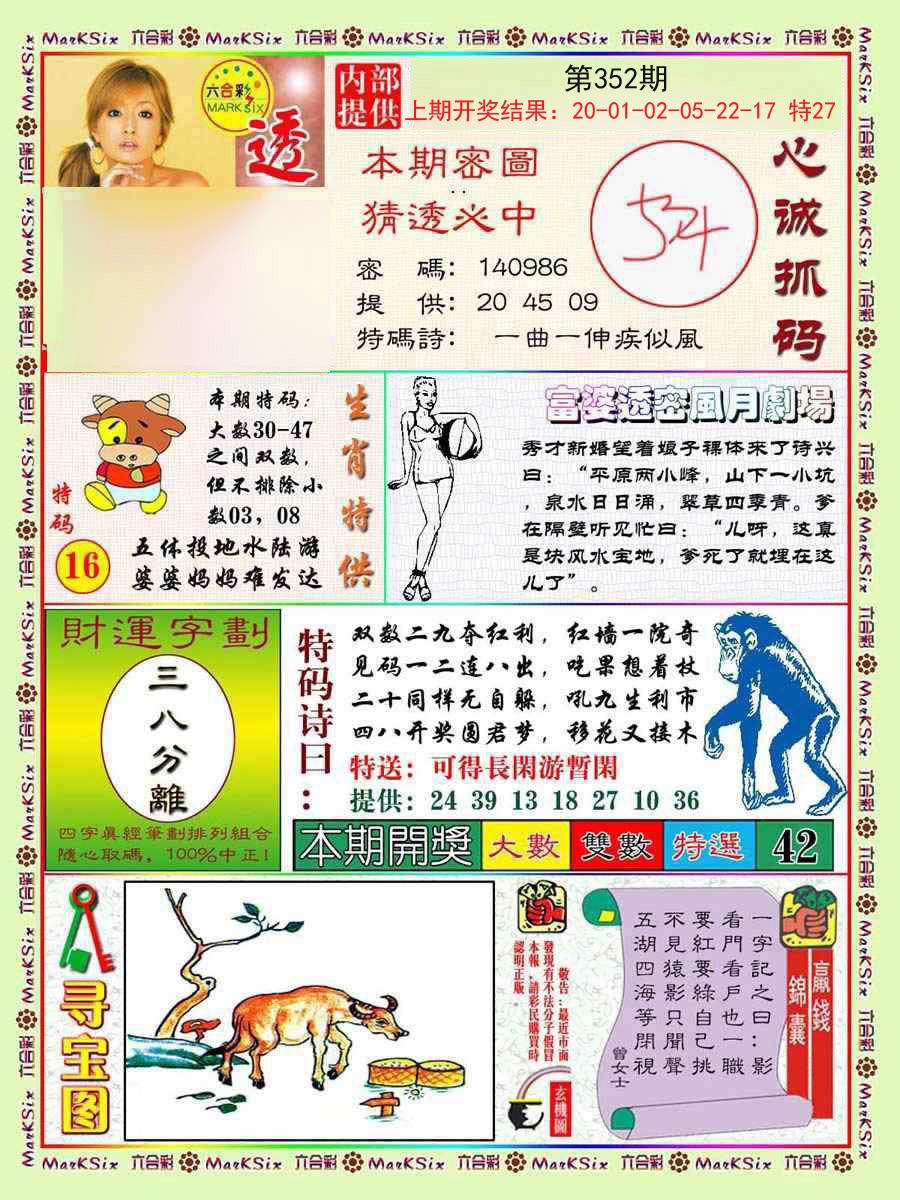 MarKSix 六合彩 MarKSix 六合彩 MarKSix 六合彩 MarKSix 六合彩 MarKSix 六合彩
六合彩
MARK six
透
内部
提供
第352期
上期开奖结果：20-01-02-05-22-17 特27
本期密圖
猜透必中
密 碼：140986
提 供：20 45 09
特碼詩： 一曲一伸疾似風
54
心诚抓码
本期特码：
大数30-47
之间双数，
但不排除小
数03，08
五体投地水陆游
婆婆妈妈难发达
特码
16
生肖特供
富婆透密風月劇場
秀才新婚望着娘子裸体来了诗兴
曰：“平原两小峰，山下一小坑
，泉水日日涌，翠草四季青。爹
在隔壁听见忙曰：“儿呀，这真
是块风水宝地，爹死了就埋在这
儿了”。
財運字劃
三八分離
四字眞經筆劃排列組合
隨心取碼，100%中正!
特码诗曰：
双数二九夺红利，红墙一院奇
见码一二连八出，吃果想着杖
二十同样无自躲，吼九生利市
四八开奖圆君梦，移花又接木
特送：可得長閑游暫閑
提供：24 39 13 18 27 10 36
本期開獎 大數 雙數 特選 42
寻宝图
敬告：最近市面
發現有不法分子假冒
本報，請彩民購買時
認明正版。
玄機圖
贏錢
錦囊
一字記之曰：影
看門看戶也一職
要紅要綠自己挑
不見猿影只聞聲
五湖四海等閑視
曾女士
MarKSix 六合彩 MarKSix 六合彩 MarKSix 六合彩 MarKSix 六合彩 MarKSix 六合彩